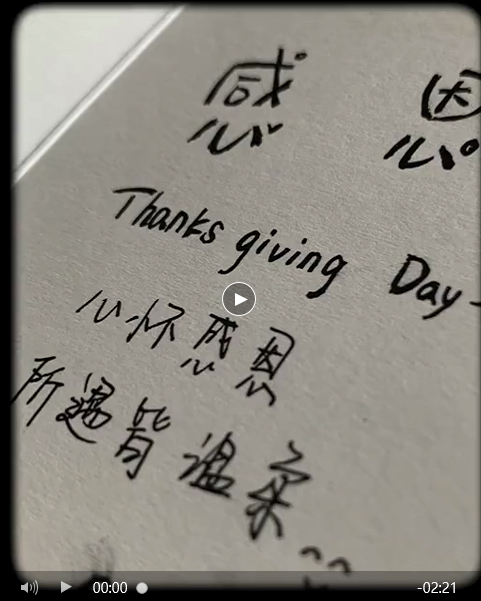 感恩
Thanks giving Day
心怀感恩
所遇皆温柔
00:00
-02:21